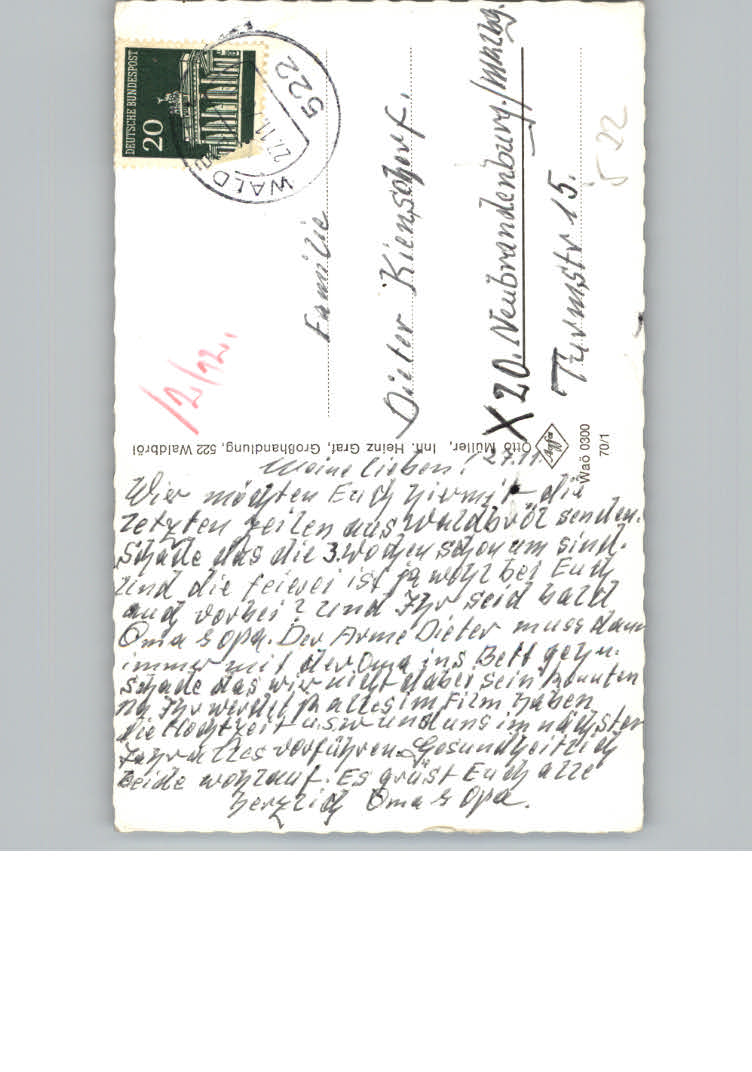 DEUTSCHE BUNDESPOST
20
522
27.11.
WALD
Familie
Dieter Kienscherf.
X 20. Neubrandenburg./Meklbg.
Turmstr 15.
522
12/12.
Otto Müller, Inh. Heinz Graf, Großhandlung, 522 Waldbröl
Agfa
Waö 0300
70/1
Meine lieben! 27.11.
Wier möchten Euch hiermit die
letzten Zeilen aus Waldbröl senden.
Schade das die 3. Wochen schon um sind.
Und die feierei ist ja wohl bei Euch
auch vorbei? Und Ihr seid bald
Oma & Opa. Der Arme Dieter muss dann
immer mit der Oma ins Bett gehn.
Schade das wir nicht dabei sein konnten
na Ihr werdet ja alles im Film haben
die Hochzeit u.s.w und uns im nächsten
Jahr alles vorführen. Gesundheitlich
beide wohlauf. Es grüst Euch alle
herzlich Oma & Opa.